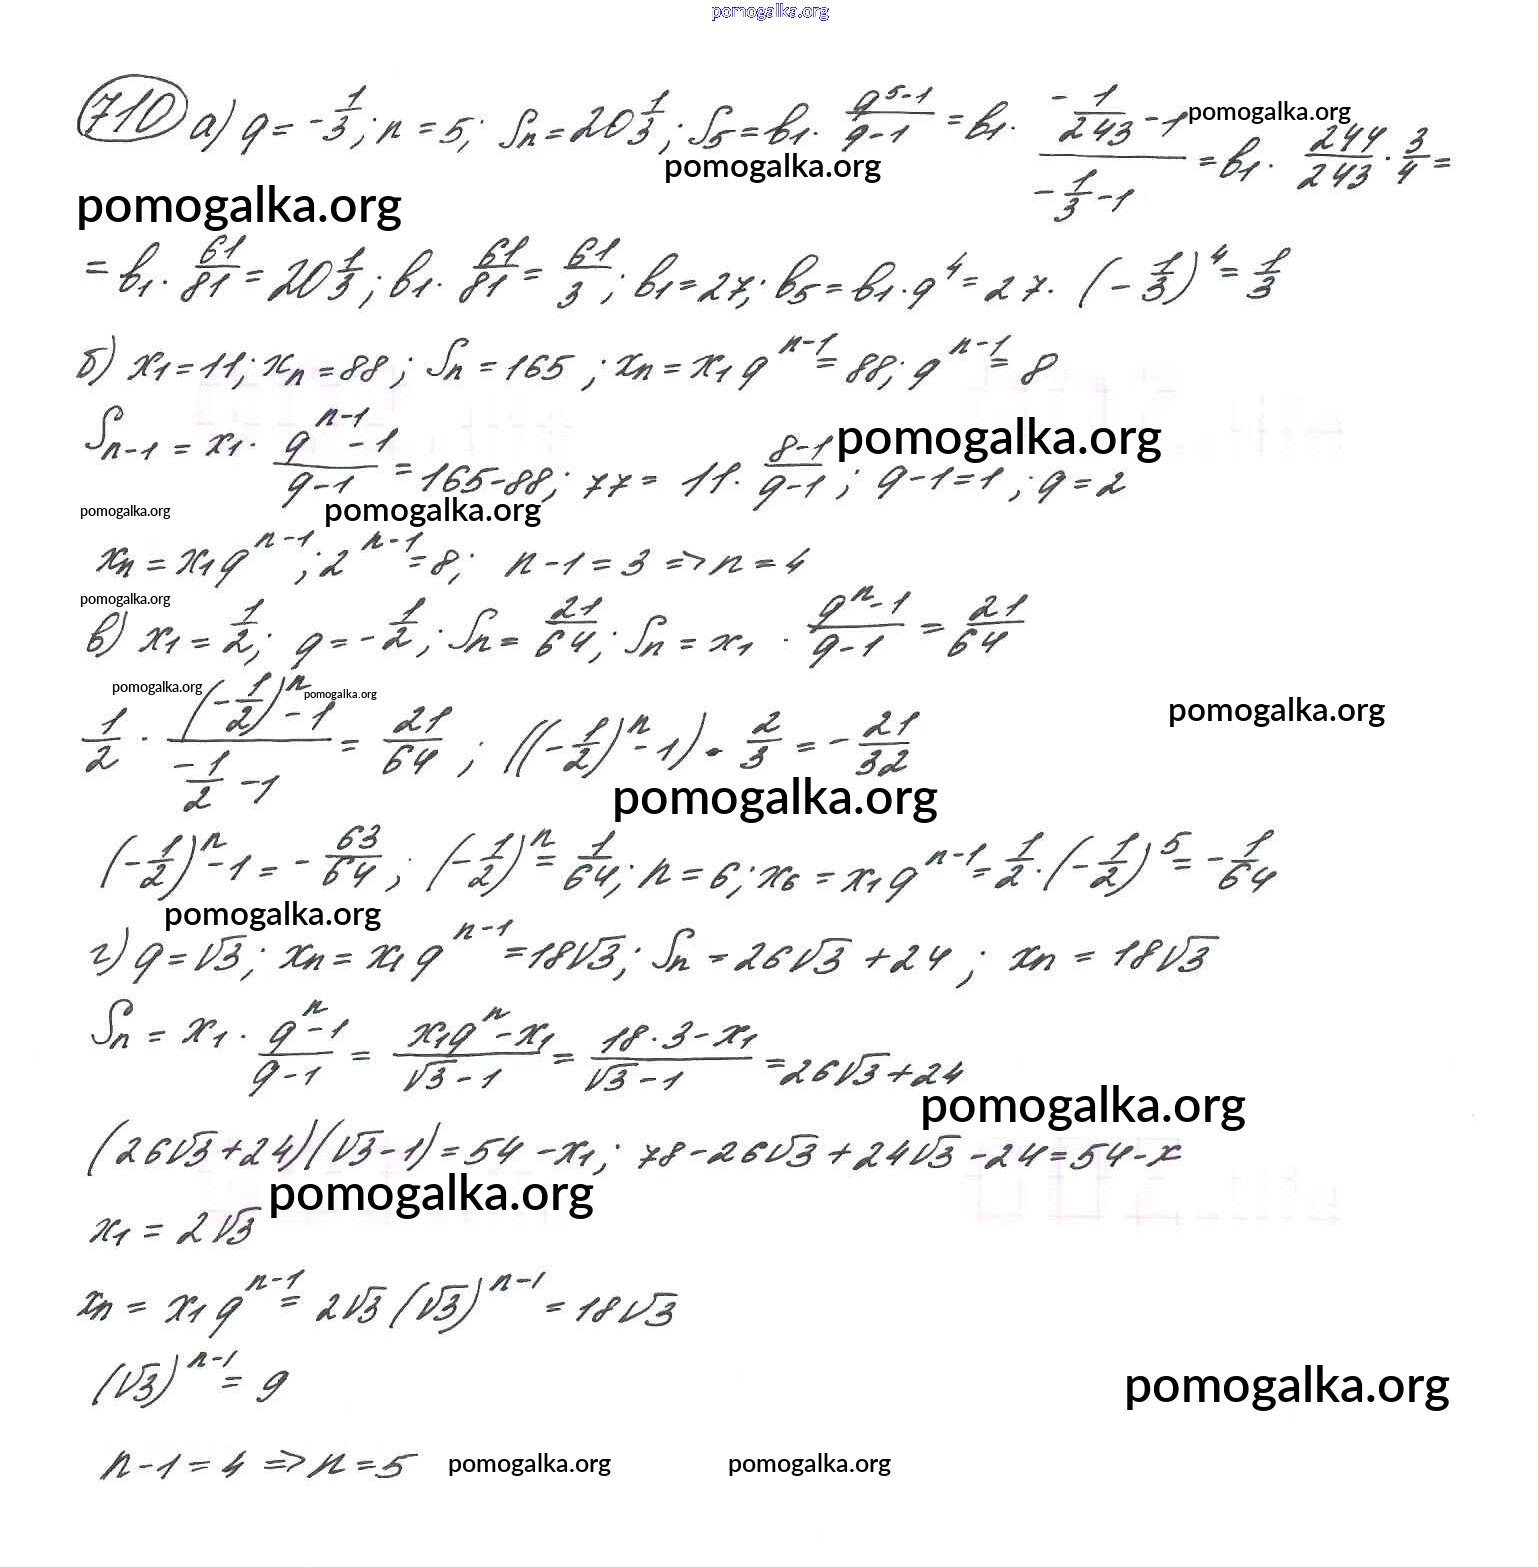 pomogalka.org
710 а) q = -1/3; n = 5; Sn = 20 1/3; S5 = b1 · (q^5-1)/(q-1) = b1 · (-1/243 - 1)/(-1/3 - 1) = b1 · 244/243 · 3/4 =
pomogalka.org
pomogalka.org
pomogalka.org
= b1 · 61/81 = 20 1/3; b1 · 61/81 = 61/3; b1 = 27; b5 = b1 · q^4 = 27 · (-1/3)^4 = 1/3
б) x1 = 11; xn = 88; Sn = 165; xn = x1 q^(n-1) = 88; q^(n-1) = 8
Sn-1 = x1 · (q^(n-1) - 1)/(q-1) = 165-88; 77 = 11 · (8-1)/(q-1); q-1 = 1; q = 2
pomogalka.org
pomogalka.org
pomogalka.org
xn = x1 q^(n-1); 2^(n-1) = 8; n-1 = 3 => n = 4
pomogalka.org
в) x1 = 1/2; q = -1/2; Sn = 21/64; Sn = x1 · (q^n - 1)/(q-1) = 21/64
pomogalka.org
pomogalka.org
pomogalka.org
1/2 · ((-1/2)^n - 1)/(-1/2 - 1) = 21/64; ((-1/2)^n - 1) · 2/3 = -21/32
pomogalka.org
(-1/2)^n - 1 = -63/64; (-1/2)^n = 1/64; n = 6; x6 = x1 q^(n-1) = 1/2 · (-1/2)^5 = -1/64
pomogalka.org
г) q = √3; xn = x1 q^(n-1) = 18√3; Sn = 26√3 + 24; xn = 18√3
Sn = x1 · (q^n - 1)/(q-1) = (x1q^n - x1)/(√3 - 1) = (18·3 - x1)/(√3 - 1) = 26√3 + 24
pomogalka.org
(26√3 + 24)(√3 - 1) = 54 - x1; 78 - 26√3 + 24√3 - 24 = 54 - x
pomogalka.org
x1 = 2√3
xn = x1 q^(n-1) = 2√3 (√3)^(n-1) = 18√3
(√3)^(n-1) = 9
pomogalka.org
n-1 = 4 => n = 5
pomogalka.org
pomogalka.org